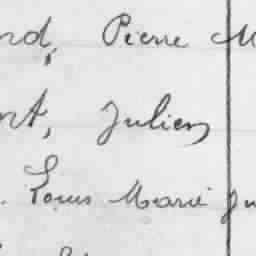 nd, Pierre M
nt, Julien
Louis Marie Ju